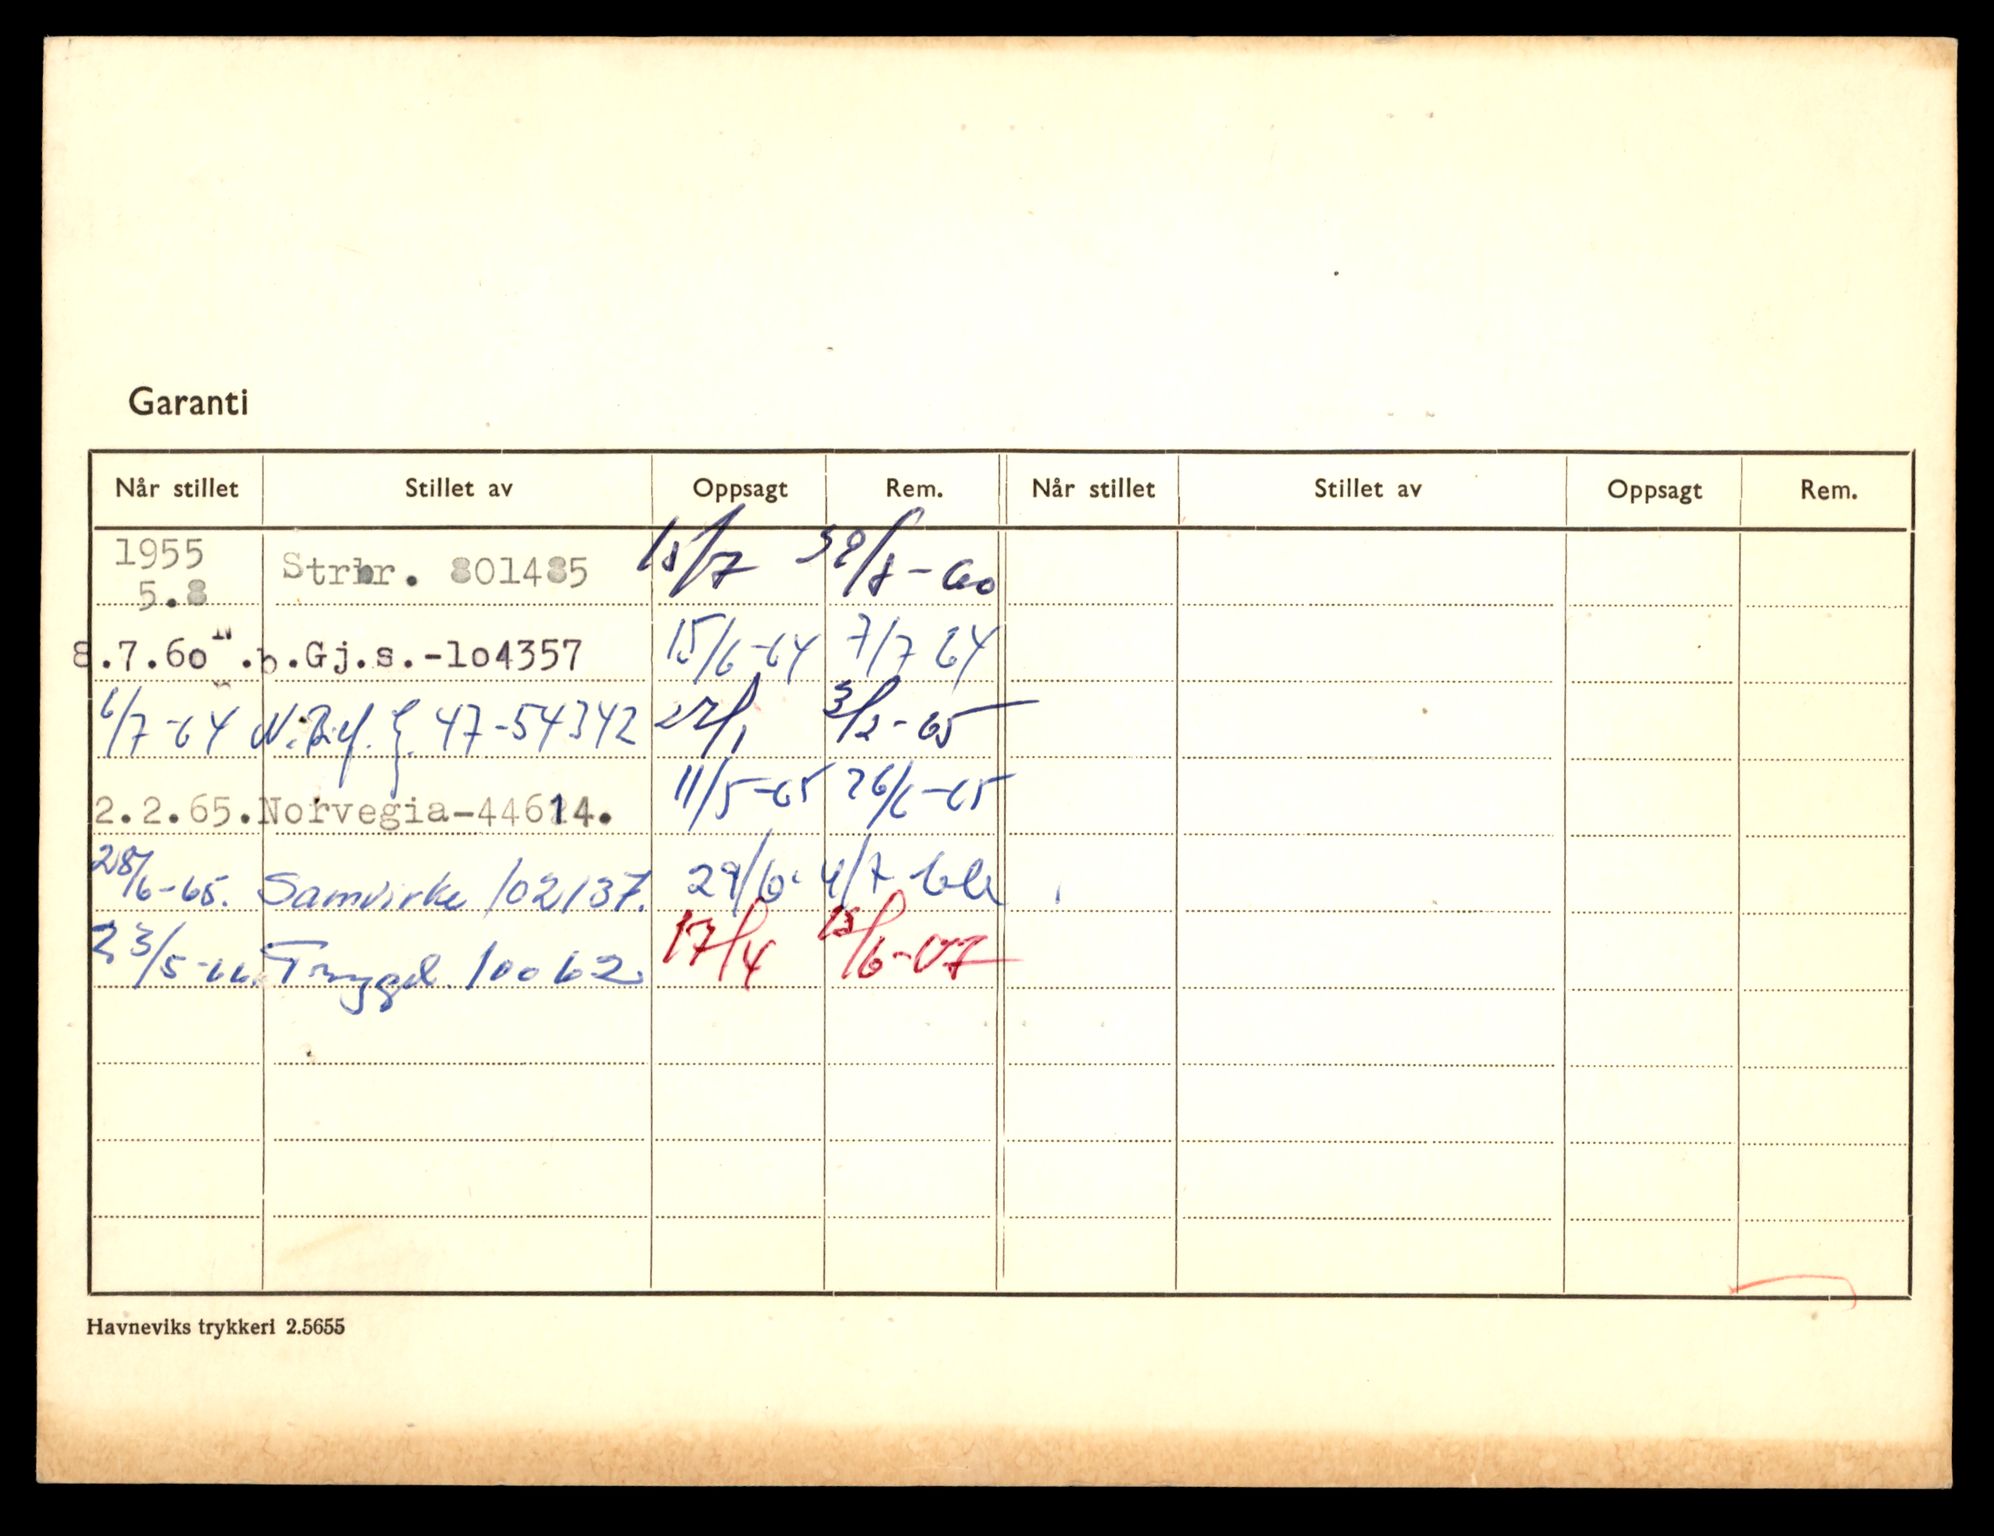 Garanti
Når stillet Stillet av Oppsagt Rem. Når stillet Stillet av Oppsagt Rem.
1955
5.8 Strbr. 801485 15/7 /8-60
8.7.60 N.b.Gj.s.-lo4357 15/6-64 7/7 64
6/7-64 N. 47-54342 27/1 3/2-65
2.2.65. Norvegia-44614. 11/5-65 26/6-65
28/6-65. Samvirke 102137. 29/6- 4/7 66
23/5-66. Trygd. 10062 17/4 /6-67
Havneviks trykkeri 2.5655